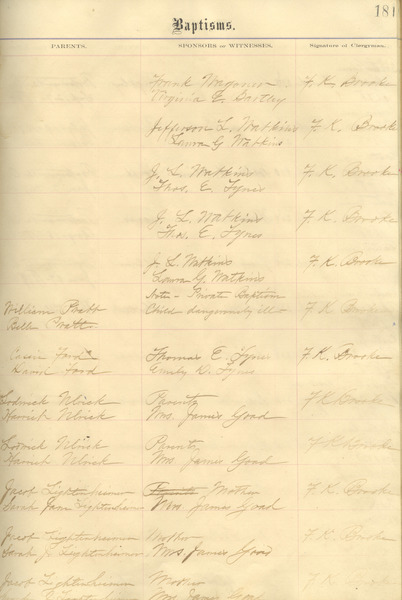 181
Baptisms.
PARENTS. SPONSORS or WITNESSES. Signature of Clergyman.
Frank Wagoner F. K. Brooke
Virginia E. Bartley
Jefferson L. Watkins F. K. Brooke
Laura G. Watkins
J. L. Watkins F. K. Brooke
Thos. E. Tynes
J. L. Watkins F. K. Brooke
Thos. E. Tynes
J. L. Watkins F. K. Brooke
Laura G. Watkins
Note - Private Baptism
William Pratt Child dangerously ill F. K. Brooke
Belle Pratt
Ford Thomas E. Tynes F. K. Brooke
David Ford Emily D. Tynes
Parents F. K. Brooke
Harriet Mrs. James Goad
Parents F. K. Brooke
Harriet Mrs James Goad
Jacob Lightenheimer Mother F. K. Brooke
Sarah Jane Lightenheimer Mrs James Goad
Jacob Lightenheimer Mother F. K. Brooke
Sarah J. Lightenheimer Mrs. James Goad
Jacob Lightenheimer Mother F. K. Brooke
Mrs. James Goad